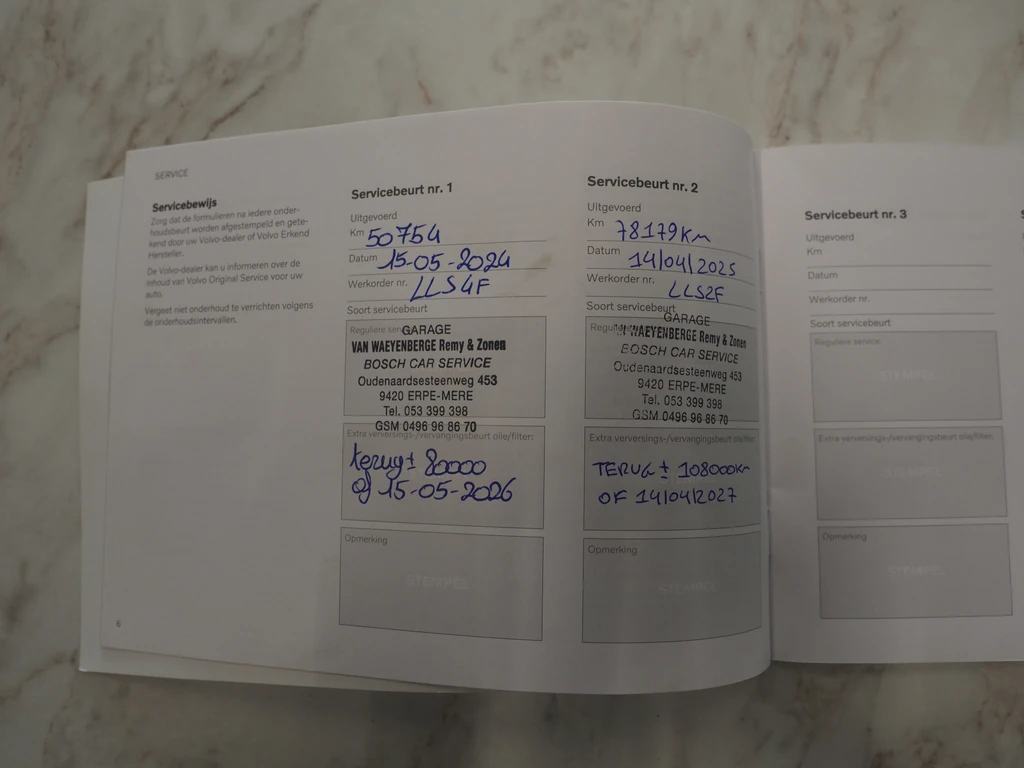 SERVICE
Servicebewijs
Zorg dat de formulieren na iedere onder-
houdsbeurt worden afgestempeld en gete-
kend door uw Volvo-dealer of Volvo Erkend
Hersteller.
De Volvo-dealer kan u informeren over de
inhoud van Volvo Original Service voor uw
auto.
Vergeet niet onderhoud te verrichten volgens
de onderhoudsintervallen.
6
Servicebeurt nr. 1
Uitgevoerd
Km 50754
Datum 15-05-2024
Werkorder nr. LLS4F
Soort servicebeurt
Reguliere
GARAGE
VAN WAEYENBERGE Remy & Zonen
BOSCH CAR SERVICE
Oudenaardsesteenweg 453
9420 ERPE-MERE
Tel. 053 399 398
GSM 0496 96 86 70
Extra verversings-/vervangingsbeurt olie/filter:
terug ± 80000
of 15-05-2026
Opmerking
STEMPEL
Servicebeurt nr. 2
Uitgevoerd
Km 78179km
Datum 14/04/2025
Werkorder nr. LLS2F
Soort servicebeurt
GARAGE
WAEYENBERGE Remy & Zonen
BOSCH CAR SERVICE
Oudenaardsesteenweg 453
9420 ERPE-MERE
Tel. 053 399 398
GSM 0496 96 86 70
Extra verversings-/vervangingsbeurt olie/filter:
TERUG ± 108000km
OF 14/04/2027
Opmerking
STEMPEL
Servicebeurt nr. 3
Uitgevoerd
Km
Datum
Werkorder nr.
Soort servicebeurt
Reguliere service:
STEMPEL
Extra verversings-/vervangingsbeurt olie/filter:
STEMPEL
Opmerking
STEMPEL